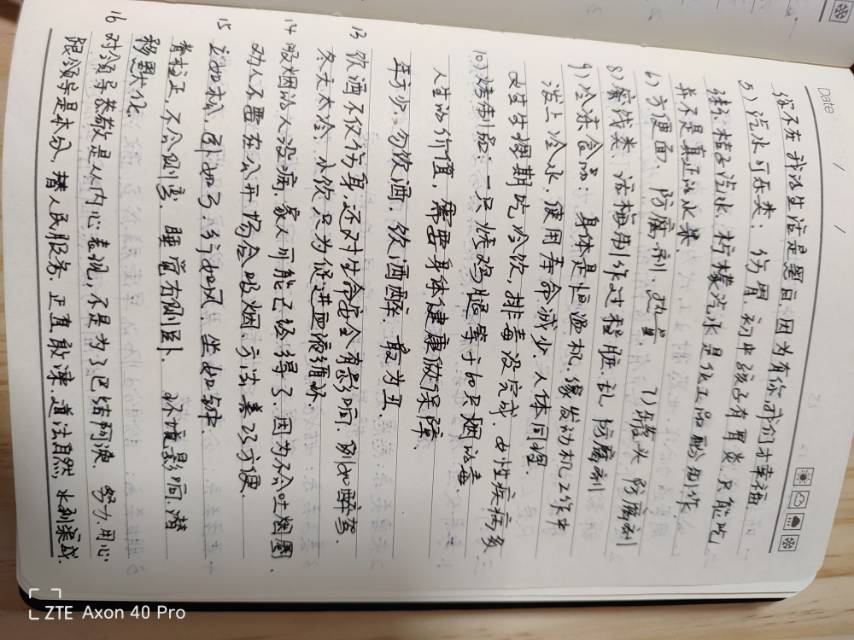 Date
你不在我的生活是黑白,因为有你,我们才幸福.
5) 汽水可乐类: 伤胃, 初中孩子有胃炎, 只能吃
桔子汽水, 柠檬汽水是化工品酚制作
并不是真正的水果.
6) 方便面, 防腐剂, 热量. 7) 罐头 防腐剂
8) 蜜饯类, 话梅制作过程脏乱, 防腐剂
9) 冷冻食品: 身体是恒温机, 像发动机工作中
泼上冷水, 使用寿命减少, 人体同理.
女生生理期吃冷饮, 排毒没完成, 女性疾病多
10) 烤制品: 一只烤鸡腿等于60只烟的毒.
人生的价值, 需要身体健康做保障.
年方少, 勿饮酒, 饮酒醉, 最为丑.
13 饮酒不仅伤身, 还对生命安全有影响, 例如醉驾.
冬天太冷, 小饮只为促进血液循环.
14 吸烟的人没病, 家人可能已经得了, 因为不会吐烟圈.
劝人不要在公开场合吸烟, 方法委婉方便.
15 立如松, 卧如弓, 行如风, 坐如钟.
脊柱正, 不会侧弯. 睡觉右侧卧. 环境影响, 潜
移默化.
16 对领导恭敬是从内心表现, 不是为了巴结阿谀. 努力, 用心
跟领导是本分, 替人民服务. 正直敢谏. 道法自然, 水到渠成.
ZTE Axon 40 Pro